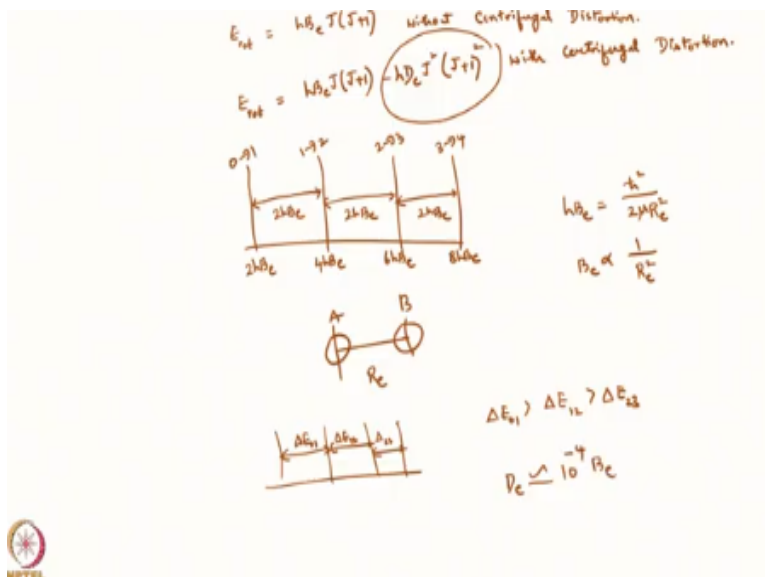 E_rot = hB_e J(J+1) without Centrifugal Distortion.
E_rot = hB_e J(J+1) - hD_e J² (J+1)² with Centrifugal Distortion.
0→1 1→2 2→3 3→4
2hB_e 2hB_e 2hB_e
2hB_e 4hB_e 6hB_e 8hB_e
hB_e = ħ² / 2μR_e²
B_e ∝ 1 / R_e²
A B
R_e
ΔE_01 ΔE_12 Δ_23
ΔE_01 > ΔE_12 > ΔE_23
D_e ≃ 10⁻⁴ B_e
NPTEL